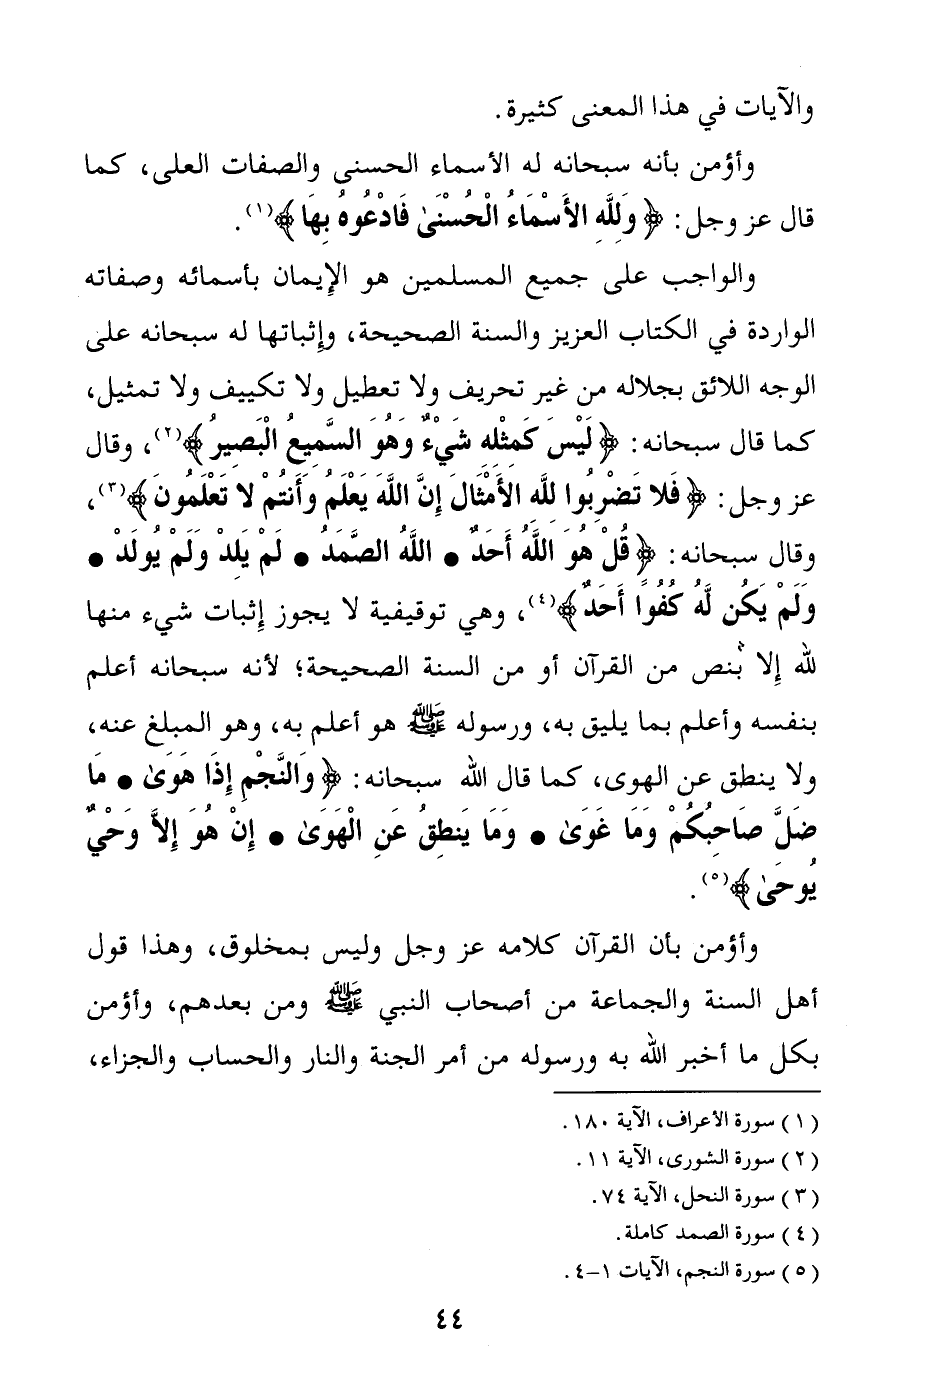 والآيات في هذا المعنى كثيرة.
وأؤمن بأنه سبحانه له الأسماء الحسنى والصفات العلى، كما
قال عز وجل: ﴿وَلِلَّهِ الأَسْمَاءُ الْحُسْنَىٰ فَادْعُوهُ بِهَا﴾(١).
والواجب على جميع المسلمين هو الإيمان بأسمائه وصفاته
الواردة في الكتاب العزيز والسنة الصحيحة، وإثباتها له سبحانه على
الوجه اللائق بجلاله من غير تحريف ولا تعطيل ولا تكييف ولا تمثيل،
كما قال سبحانه: ﴿لَيْسَ كَمِثْلِهِ شَيْءٌ وَهُوَ السَّمِيعُ الْبَصِيرُ﴾(٢)، وقال
عز وجل: ﴿فَلا تَضْرِبُوا لِلَّهِ الأَمْثَالَ إِنَّ اللَّهَ يَعْلَمُ وَأَنتُمْ لا تَعْلَمُونَ﴾(٣)،
وقال سبحانه: ﴿قُلْ هُوَ اللَّهُ أَحَدٌ • اللَّهُ الصَّمَدُ • لَمْ يَلِدْ وَلَمْ يُولَدْ •
وَلَمْ يَكُن لَّهُ كُفُوًا أَحَدٌ﴾(٤)، وهي توقيفية لا يجوز إثبات شيء منها
لله إلا بنص من القرآن أو من السنة الصحيحة؛ لأنه سبحانه أعلم
بنفسه وأعلم بما يليق به، ورسوله ﷺ هو أعلم به، وهو المبلغ عنه،
ولا ينطق عن الهوى، كما قال الله سبحانه: ﴿وَالنَّجْمِ إِذَا هَوَىٰ • مَا
ضَلَّ صَاحِبُكُمْ وَمَا غَوَىٰ • وَمَا يَنطِقُ عَنِ الْهَوَىٰ • إِنْ هُوَ إِلاَّ وَحْيٌ
يُوحَىٰ﴾(٥).
وأؤمن بأن القرآن كلامه عز وجل وليس بمخلوق، وهذا قول
أهل السنة والجماعة من أصحاب النبي ﷺ ومن بعدهم، وأؤمن
بكل ما أخبر الله به ورسوله من أمر الجنة والنار والحساب والجزاء،
(١) سورة الأعراف، الآية ١٨٠.
(٢) سورة الشورى، الآية ١١.
(٣) سورة النحل، الآية ٧٤.
(٤) سورة الصمد كاملة.
(٥) سورة النجم، الآيات ١-٤.
٤٤